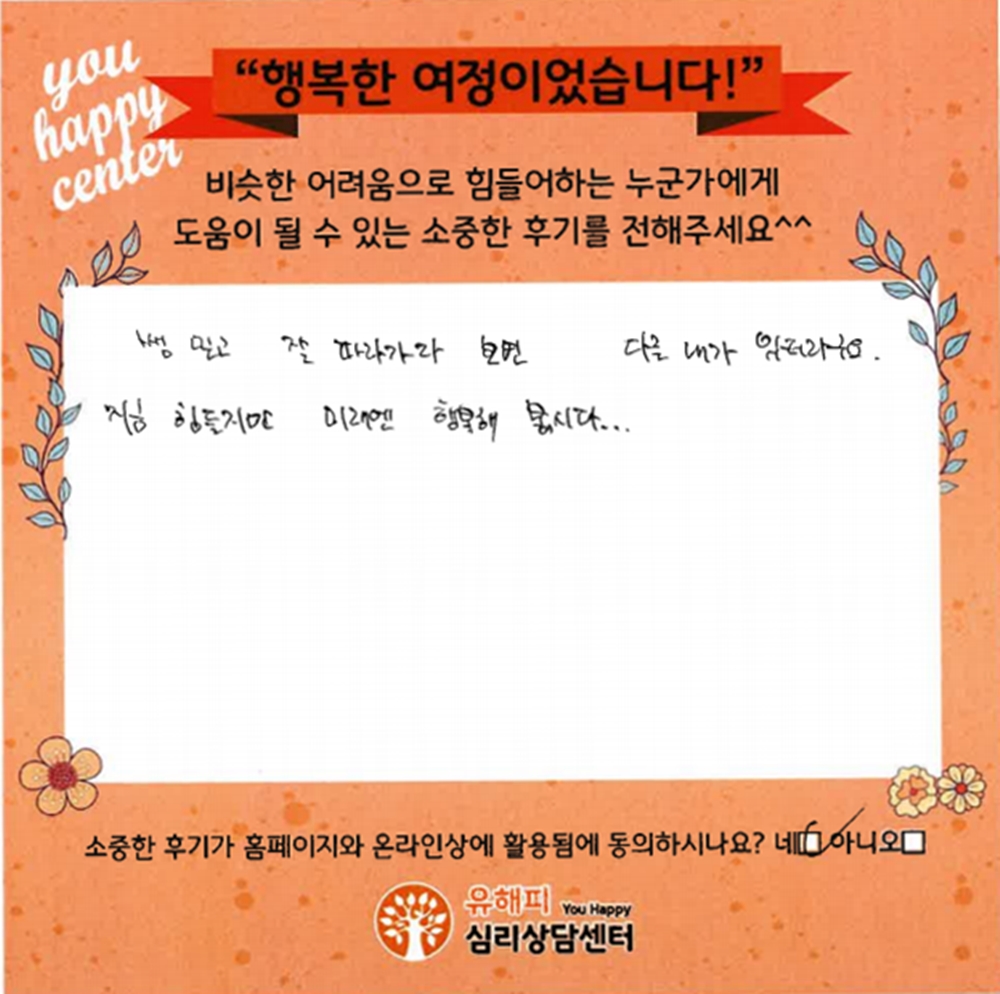 you
happy
center
“행복한 여정이었습니다!”
비슷한 어려움으로 힘들어하는 누군가에게
도움이 될 수 있는 소중한 후기를 전해주세요^^
쌤 믿고 잘 따라가다 보면 다른 내가 있더라구요.
지금 힘들지만 미래엔 행복해 봅시다...
소중한 후기가 홈페이지와 온라인상에 활용됨에 동의하시나요? 네□ 아니오□
유해피 You Happy
심리상담센터